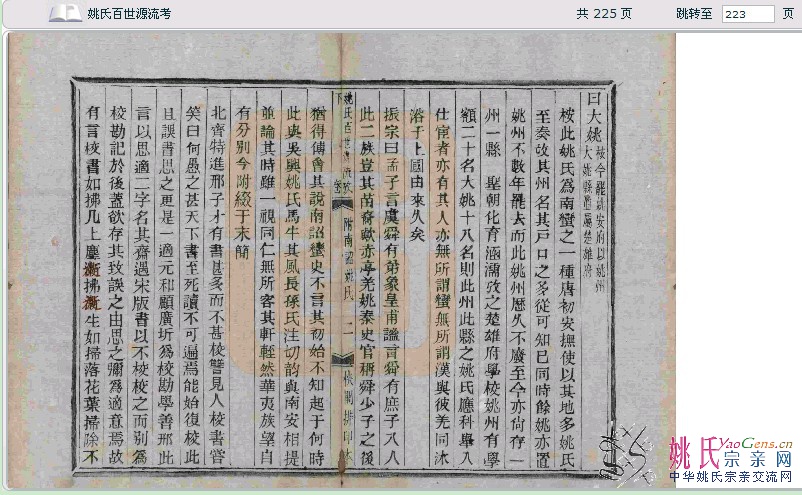 姚氏百世源流考
共 225 页
跳转至 223 页
曰大姚 按今罷姚安府以姚州大姚縣還屬楚雄府
按此姚氏爲南蠻之一種唐初安撫使以其地多姚氏
至奏改其州名其戸口之多從可知已同時餘姚亦置
姚州不數年罷去而此姚州歷久不廢至今亦尙存一
州一縣 聖朝化育涵濡攷之楚雄府學校姚州有學
額二十名大姚十八名則此州此縣之姚氏應科舉入
仕宦者亦有其人亦無所謂蠻無所謂漢與彼羌同沐
浴于上國由來久矣
振宗曰孟子言虞舜有弟象皇甫謐言舜有庶子八人
此二族豈其苗裔歟亦亭羌姚秦史官稱舜少子之後
猶得傅會其說南詔蠻史不言其初始不知起于何時
此與吳興姚氏馬牛其風長孫氏注切韵與南安相提
並論其時雖一視同仁無所容其軒輊然華夷族望自
有分別今附綴于末簡
北齊特進邢子才有書甚多而不甚校讐見人校書嘗
笑曰何愚之甚天下書至死讀不可遍焉能始復校此
且誤書思之更是一適元和顧廣圻爲校勘學善邢此
言以思適二字名其齋遇宋版書以不校校之而别爲
校勘記於後蓋欲存其致誤之由思之彌爲適意焉故
有言校書如拂几上塵漸拂漸生如掃落花葉掃除不
姚氏百世源流攷
附南詔姚氏
二
姚氏YaoGens.cn
宗亲网
中华姚氏宗亲交流网